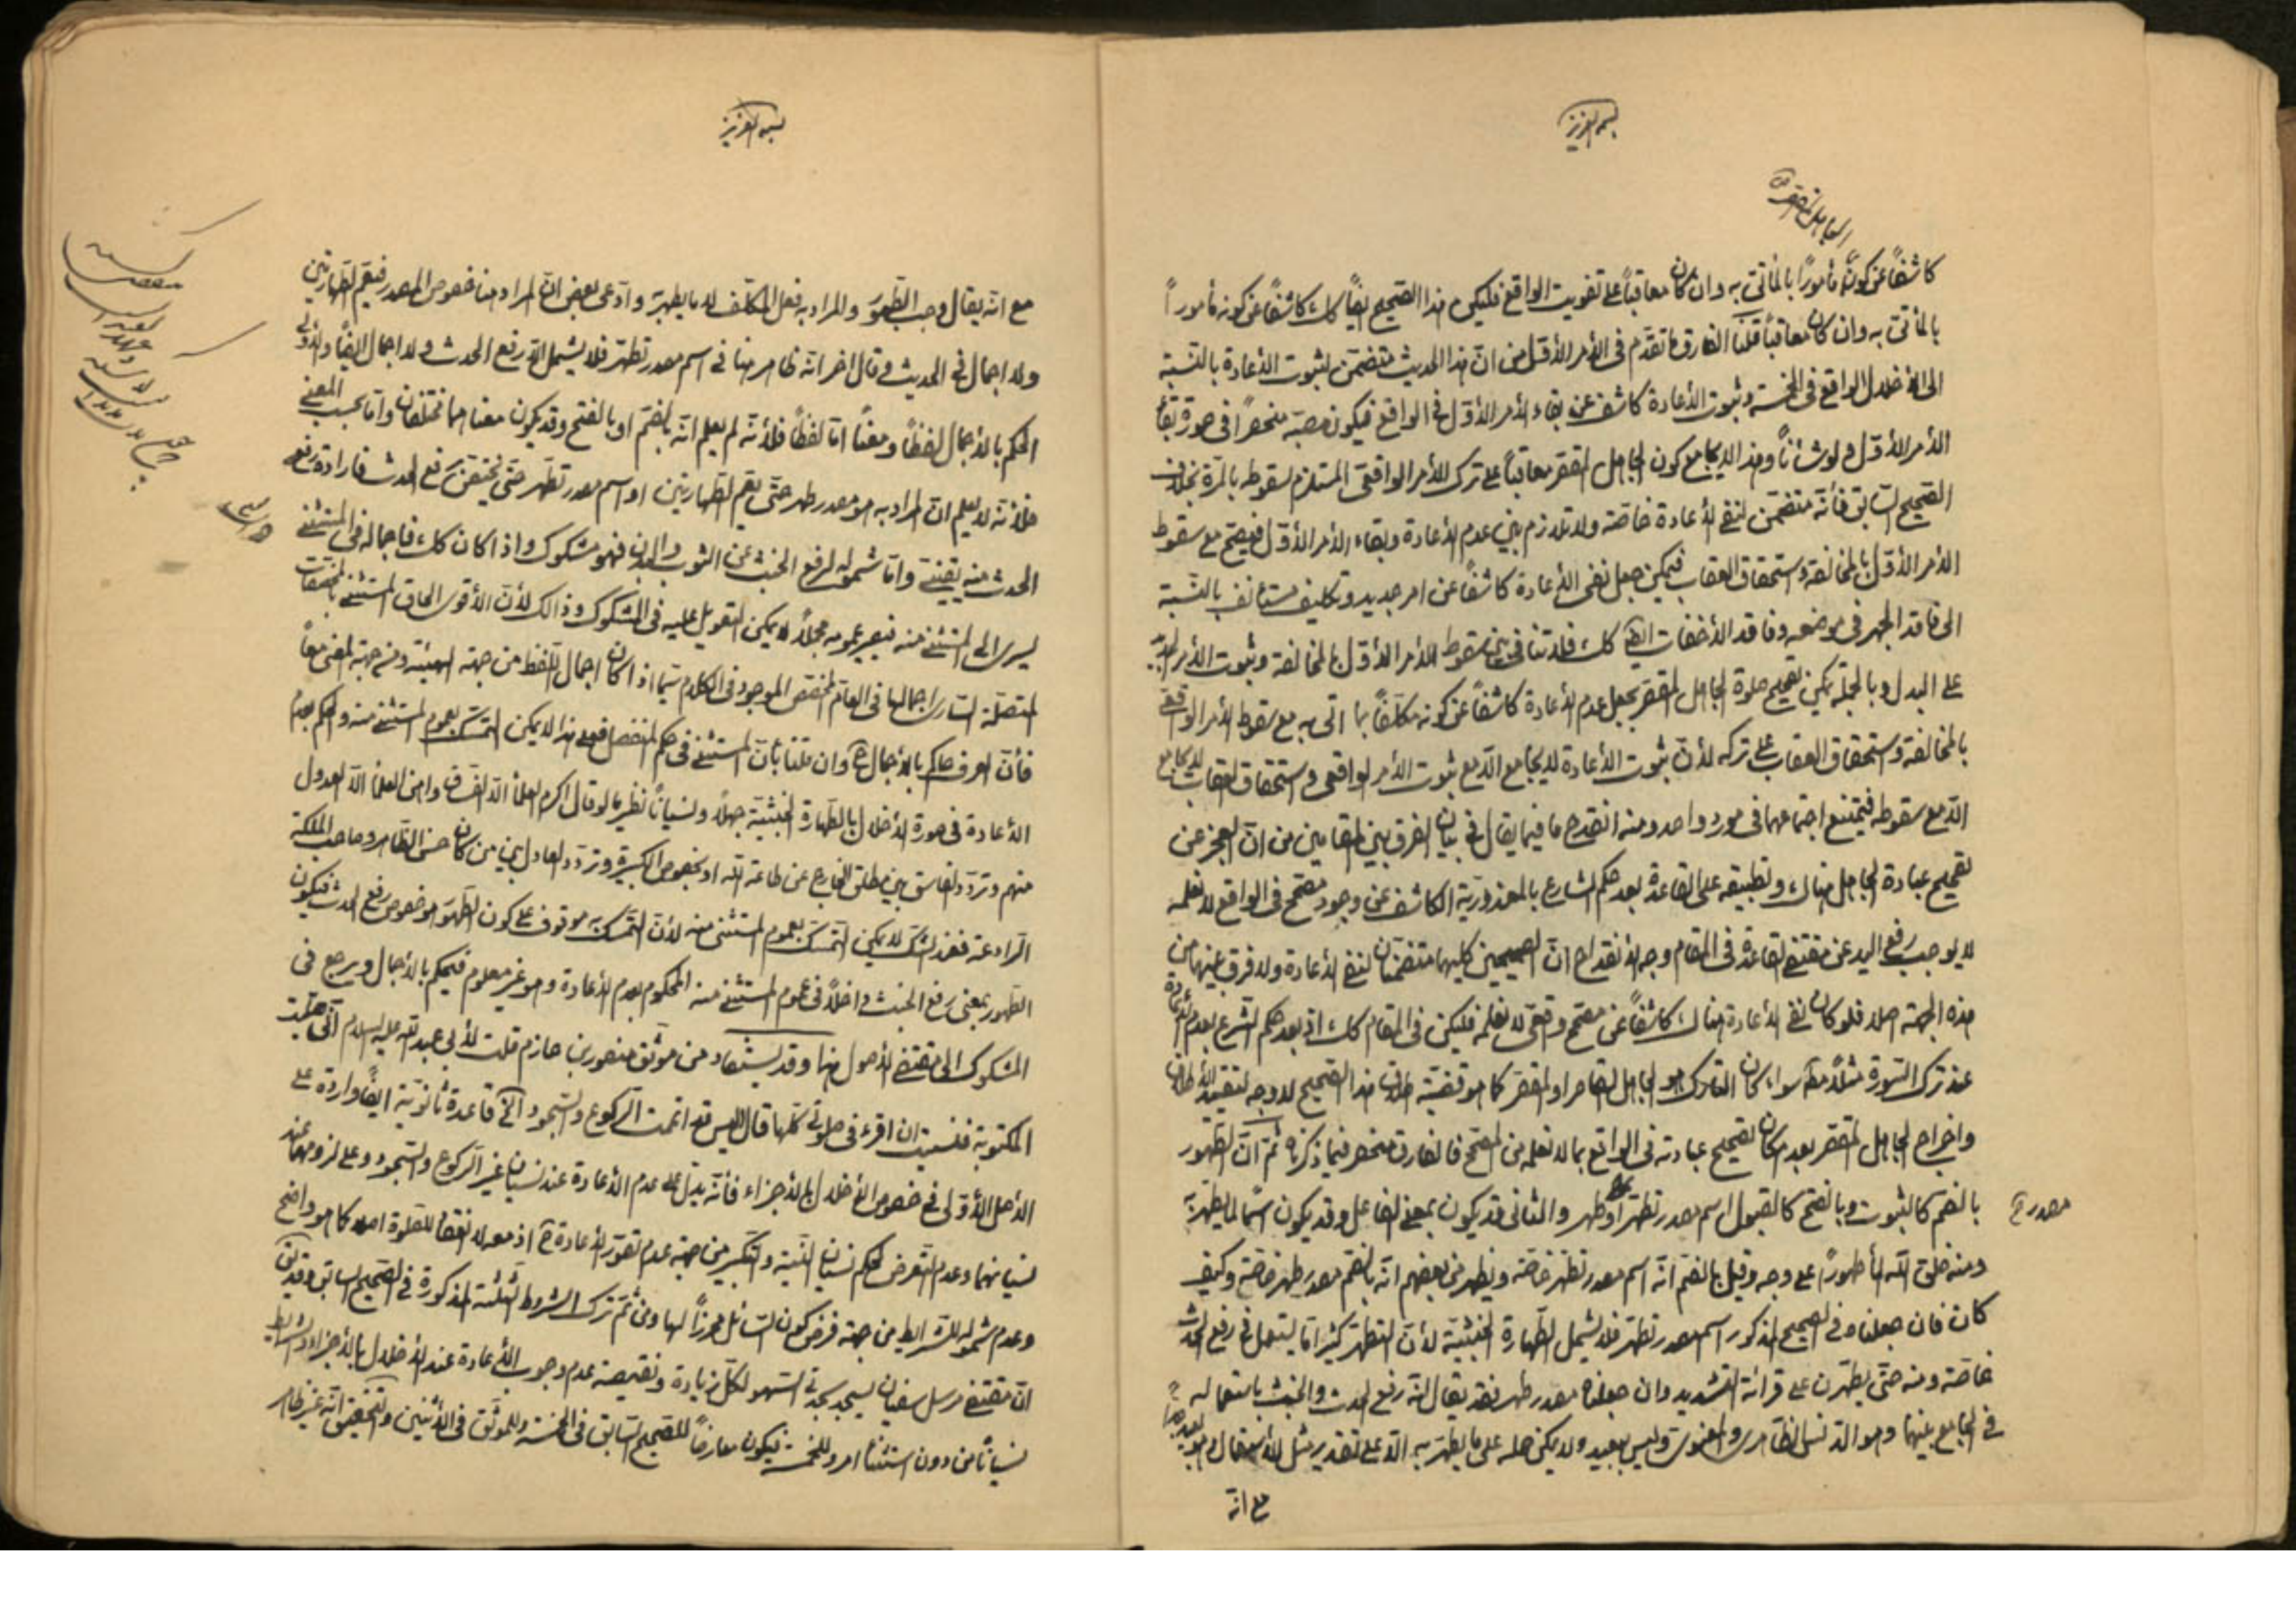 بسمه العزيز
الجاهل المقصر
كاشفاً عن كونه مأموراً بالمأتى به وان كان معاقباً على تفويت الواقع فليكن هذا الصحيح ايضاً كك كاشفاً عن كونه مأموراً
بالمأتى به وان كان معاقباً قلنا الفارق ما تقدم فى الأمر الأول من ان هذا الحديث متضمن لثبوت الأعادة بالنسبة
الى الأخلال الواقع فى الخمسة وثبوت الأعادة كاشف عن بقاء الأمر الأول فى الواقع فيكون مصبّه منحصراً فى صورة بقاء
الأمر الأول ولو شأناً وهذا لا يجامع كون الجاهل المقصر معاقباً على ترك الأمر الواقعى المستلزم لسقوطه بالمرة بخلاف
الصحيح السابق فأنه متضمن لنفى الأعادة خاصة ولا تلازم بين عدم الأعادة وبقاء الأمر الأول فيصح مع سقوط
الأمر الأول بالمخالفة واستحقاق العقاب فيمكن جعل نفى الأعادة كاشفاً عن امر جديد وتكليف مستأنف بالنسبة
الى فاقد الجهر فى موضعه وفاقد الأخفات ايضاً كك فلا تنافى بين سقوط الأمر الأول بالمخالفة وثبوت الأمر
على البدل وبالجملة يمكن تصحيح صلوة الجاهل المقصر بجعل عدم الأعادة كاشفاً عن كونه مكلفاً بما اتى به مع سقوط الأمر الواقعى
بالمخالفة واستحقاق العقاب على تركه لأن ثبوت الأعادة لا يجامع الا مع ثبوت الأمر الواقعى واستحقاق العقاب لا يجامع
الا مع سقوطه فيمتنع اجتماعهما فى مورد واحد ومنه انقدح ما فيما يقال فى بيان الفرق بين المقامين من ان العجز عن
تصحيح عبادة الجاهل هناك وتطبيقه على القاعدة بعد حكم الشارع بالمعذورية الكاشف عن وجود مصحح فى الواقع لا نعلمه
لا يوجب رفع اليد عن مقتضى القاعدة فى المقام وجه الأنقداح ان الصحيحين كليهما متضمنان لنفى الأعادة ولا فرق بينهما من
هذه الجهة اصلا فلو كان نفى الأعادة هناك كاشفاً عن مصحح واقعى لا نعلمه فليكن فى المقام كك اذ بعد حكم الشرع بعدم الأعادة
عند ترك السورة مثلاً مطلقا سواء كان التارك هو الجاهل القاصر او المقصر كما هو قضية اطلاق هذا الصحيح لا وجه لتقييد الأطلاق
واخراج الجاهل المقصر بعدم امكان تصحيح عبادته فى الواقع بما لا نعلمه من المصحح فالفارق منحصر فيما ذكرناه ثم ان الطهور
بالضم كالثبوت وبالفتح كالقبول اسم مصدر تطهر او طهر والثانى قد يكون بمعنى الفاعل وقد يكون اسماً لما يطهر به
مصدر
ومنه خلق الله الماء طهوراً على وجه وقيل بالضم انه اسم مصدر تطهر خاصة ويظهر من بعضهم انه بالضم مصدر طهر خاصة وكيف
كان فان جعلناه فى الصحيح المذكور اسم مصدر تطهر فلا يشمل الطهارة الخبثية لأن التطهر كثيراً ما يستعمل فى رفع الحدث
خاصة ومنه حتى يطهرن على قرائة التشديد وان جعلناه مصدر طهر فقد يقال انه رفع الحدث والخبث باستعماله
فى الجامع بينهما وهو الدنس الظاهرى والمعنوى وليس ببعيد ولا يمكن حمله على ما يطهر به الا على تقدير مثل الأستعمال
مع انه
بسمه العزيز
مع انه يقال وجب الطهور والمراد به فعل المكلف لا ما يطهر به وادعى بعض ان المراد هنا خصوص المصدر فيعم الطهارتين
ولا اجمال فى الحديث وقال اخر انه ظاهر هنا فى اسم مصدر تطهر فلا يشمل الا رفع الحدث ولا اجمال ايضاً والأولى
الحكم بالأجمال لفظاً ومعناً اما لفظاً فلأنه لم يعلم انه بالضم او بالفتح وقد يكون معناهما مختلفان واما بحسب المعنى
فلأنه لا يعلم ان المراد به هو مصدر طهر حتى يعم الطهارتين او اسم مصدر تطهر حتى يختص برفع الحدث فارادة رفع
الحدث منه يقينى واما شموله لرفع الخبث عن الثوب والبدن فهو مشكوك واذا كان كك فاجماله فى المستثنى
يسرى الى المستثنى منه فيصير عمومه مجملاً لا يمكن التعويل عليه فى المشكوك وذالك لأن الأقوى الحاق المستثنى بالمخصصات
المتصلة السارى اجمالها فى العام المخصص الموجود فى الكلام سيما اذا كان اجمال اللفظ من جهة الهيئة ومن جهة المعنى معاً
فأن العرف حاكم بالأجمال ح وان قلنا بأن المستثنى فى حكم المنفصل فعلى هذا لا يمكن التمسك بعموم المستثنى منه والحكم بعدم
الأعادة فى صورة الأخلال بالطهارة الخبثية جهلاً ونسياناً نظير ما لو قال اكرم العلماء الا الفساق او اهن العلماء الا العدول
منهم وتردد الفاسق بين مطلق الخارج عن طاعة الله او بخصوص الكبيرة وتردد العادل بين من كان حسن الظاهر وصاحب الملكة
الرادعة فعند الشك لا يمكن التمسك بعموم المستثنى منه لأن التمسك به موقوف على كون الطهور هو خصوص رفع الحدث فيكون
الطهور بمعنى رفع الخبث داخلاً فى عموم المستثنى منه المحكوم بعدم الأعادة وهو غير معلوم فيحكم بالأجمال ويرجع فى
المشكوك الى مقتضى الأصول فيها وقد يستفاد من موثق منصور بن حازم قلت لأبى عبد الله عليه السلام انى صليت
المكتوبة فنسيت ان اقرء فى صلوتى كلها قال اليس قد اتممت الركوع والسجود الخ قاعدة ثانوية ايضاً واردة على
الأصل الأولى فى خصوص الأخلال بالأجزاء فأنه يدل على عدم الأعادة عند نسيان غير الركوع والسجود وعلى لزومها عند
نسيانهما وعدم التعرض لحكم نسيان النية والتكبير من جهة عدم تصور الأعادة ح اذ معه لا انعقاد للصلوة اصلا كما هو واضح
وعدم شموله للشرايط من جهة فرض كون السائل محرزاً لها ومن ثم ترك الشروط الثلثة المذكورة فى الصحيح السابق وقد يق
ان مقتضى مرسل سفيان يسجد سجدتى السهو لكل زيادة ونقيصة عدم وجوب الأعادة عند الأخلال بالأجزاء والشرايط
نسياناً من دون استثناء امر وللخمسة فيكون معارضاً للصحيح السابق فى الخمسة وللموثق فى الأثنين والتحقيق انه غير ظاهر